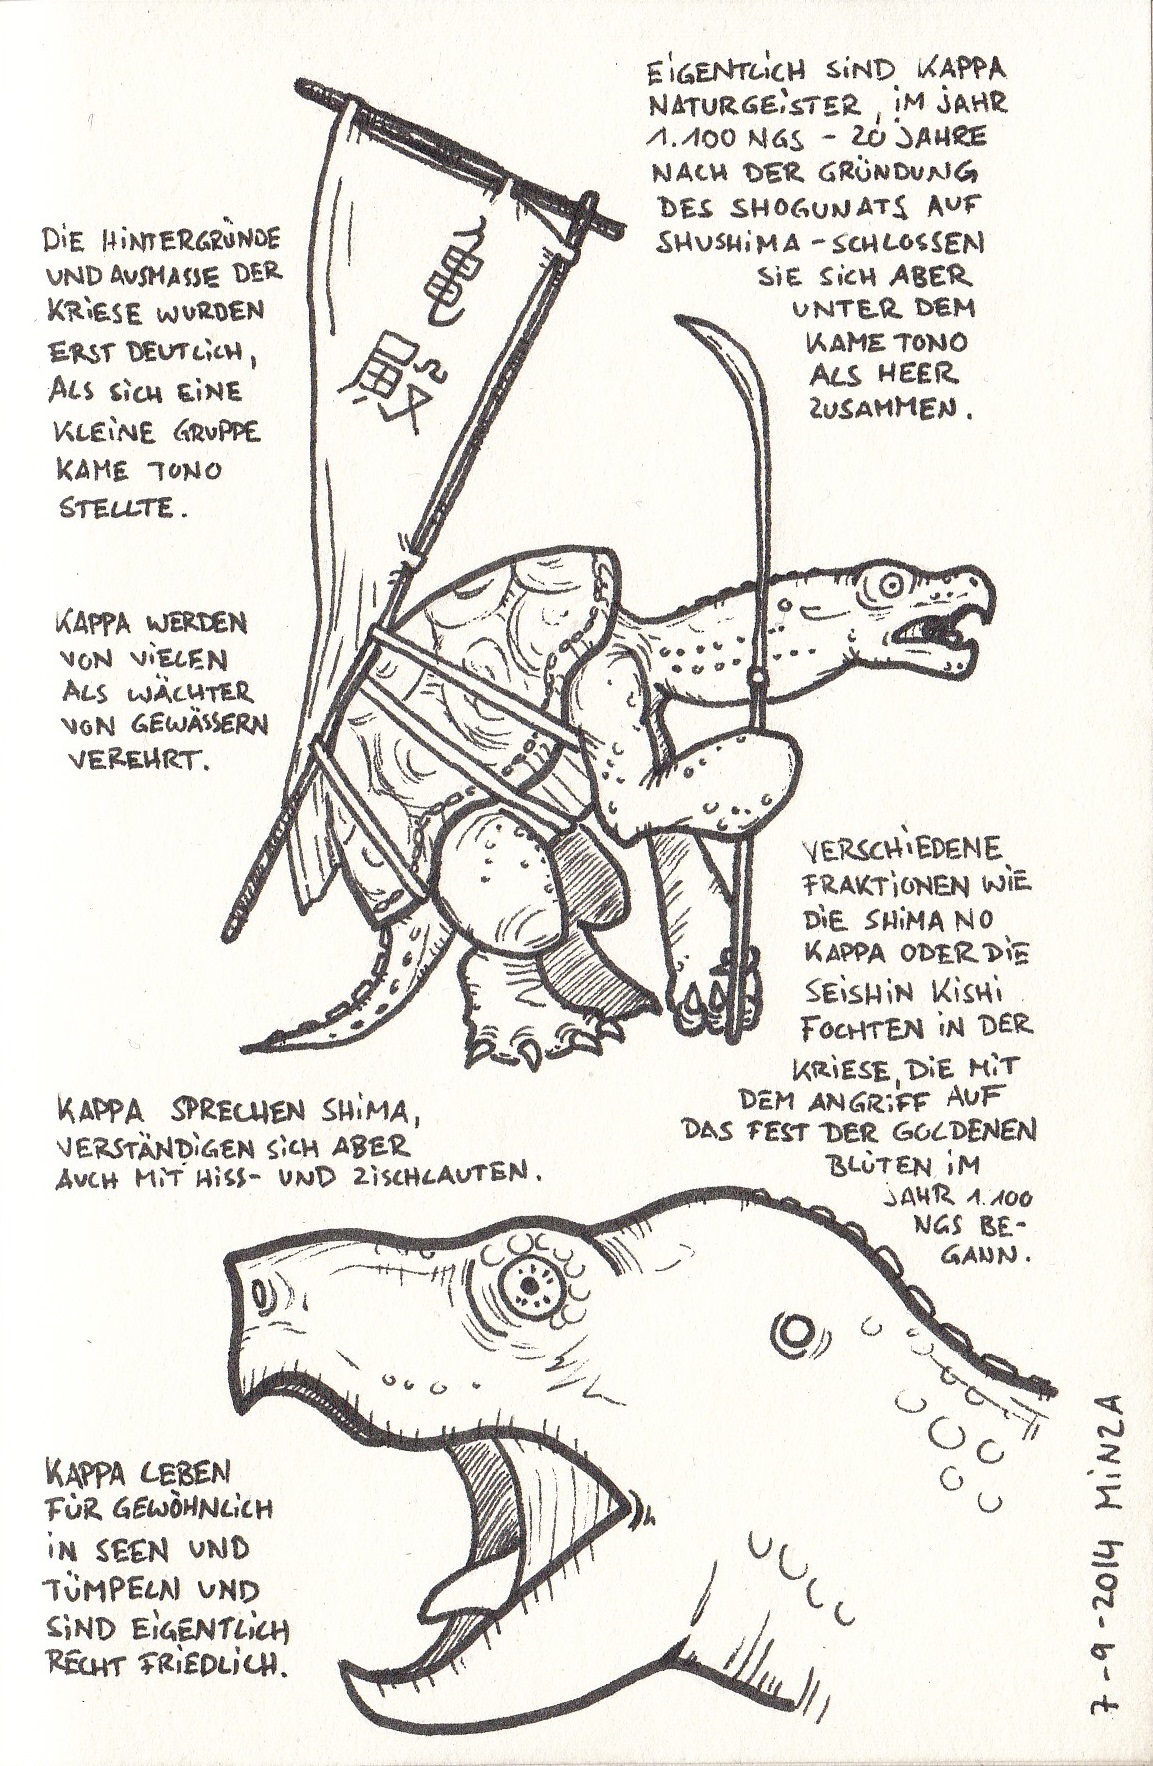 EIGENTLICH SIND KAPPA
NATURGEISTER, IM JAHR
1.100 NGS - 20 JAHRE
NACH DER GRÜNDUNG
DES SHOGUNATS AUF
SHUSHIMA - SCHLOSSEN
SIE SICH ABER
UNTER DEM
KAME TONO
ALS HEER
ZUSAMMEN.
DIE HINTERGRÜNDE
UND AUSMASSE DER
KRIESE WURDEN
ERST DEUTLICH,
ALS SICH EINE
KLEINE GRUPPE
KAME TONO
STELLTE.
亀
殿
KAPPA WERDEN
VON VIELEN
ALS WÄCHTER
VON GEWÄSSERN
VEREHRT.
VERSCHIEDENE
FRAKTIONEN WIE
DIE SHIMA NO
KAPPA ODER DIE
SEISHIN KISHI
FOCHTEN IN DER
KRIESE, DIE MIT
DEM ANGRIFF AUF
DAS FEST DER GOLDENEN
BLÜTEN IM
JAHR 1.100
NGS BE-
GANN.
KAPPA SPRECHEN SHIMA,
VERSTÄNDIGEN SICH ABER
AUCH MIT HISS- UND ZISCHLAUTEN.
KAPPA LEBEN
FÜR GEWÖHNLICH
IN SEEN UND
TÜMPELN UND
SIND EIGENTLICH
RECHT FRIEDLICH.
7-9-2014 MINZA